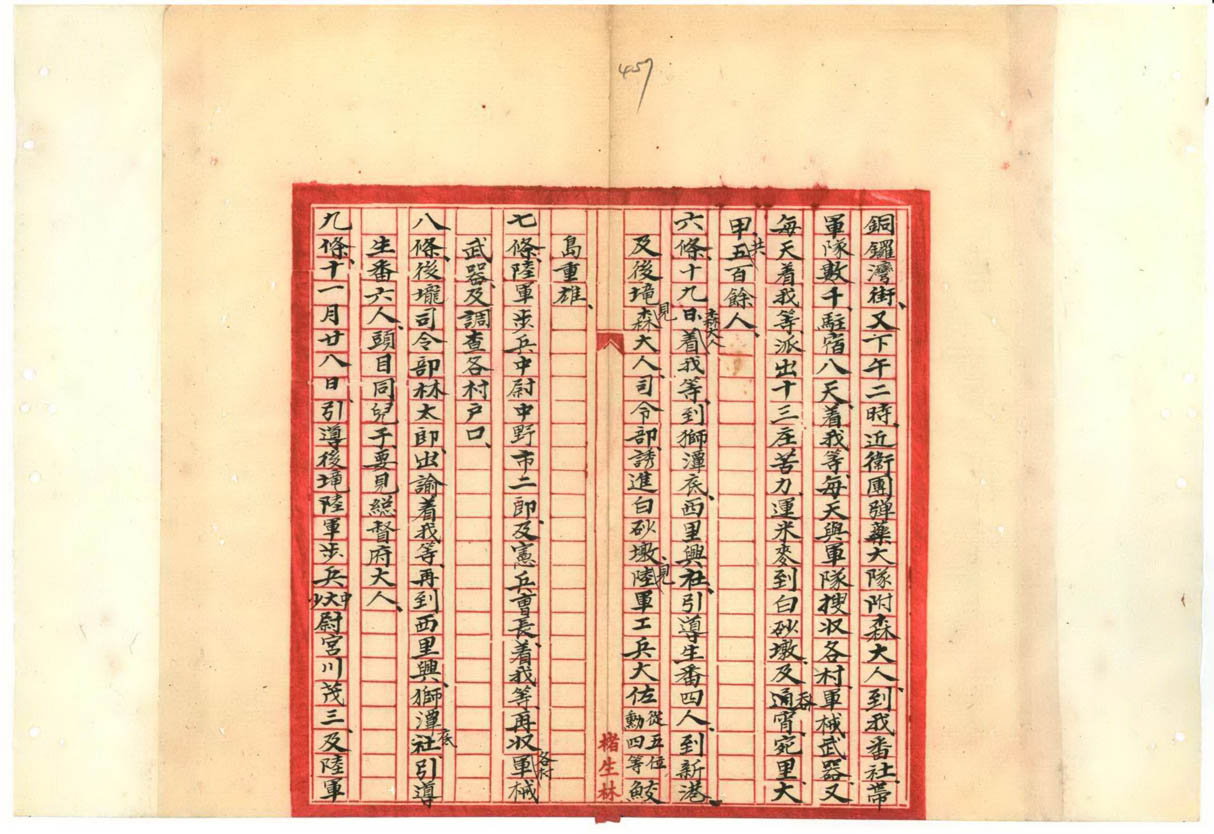 457
銅鑼灣街、又下午二時、近衛團弹藥大隊附森大人、到我番社、帶
軍隊數千、駐宿八天、着我等、每天與軍隊搜収各村軍械武器、又
每天着我等、派出十三庄苦力、運米麥到白砂墩、及通宵、宛里、大
甲、共五百餘人、
六條、十九日、森大人着我等、到獅潭底、西里興社、引導生番四人、到新港、
及後垅見森大人、司令部、誘進白砂墩、見陸軍工兵大佐從五位勳四等鮫
島重雄、
七條、陸軍步兵中尉中野市二郎、及憲兵曹長、着我等、再収各村軍械
武器、及調查各村戸口、
八條、後壠司令部林太郎、出諭着我等、再到西里興、獅潭底社、引導
生番六人、頭目同兒子、要見総督府大人、
九條、十一月廿八日、引導後垅陸軍步兵中尉宮川茂三、及陸軍
楮生林